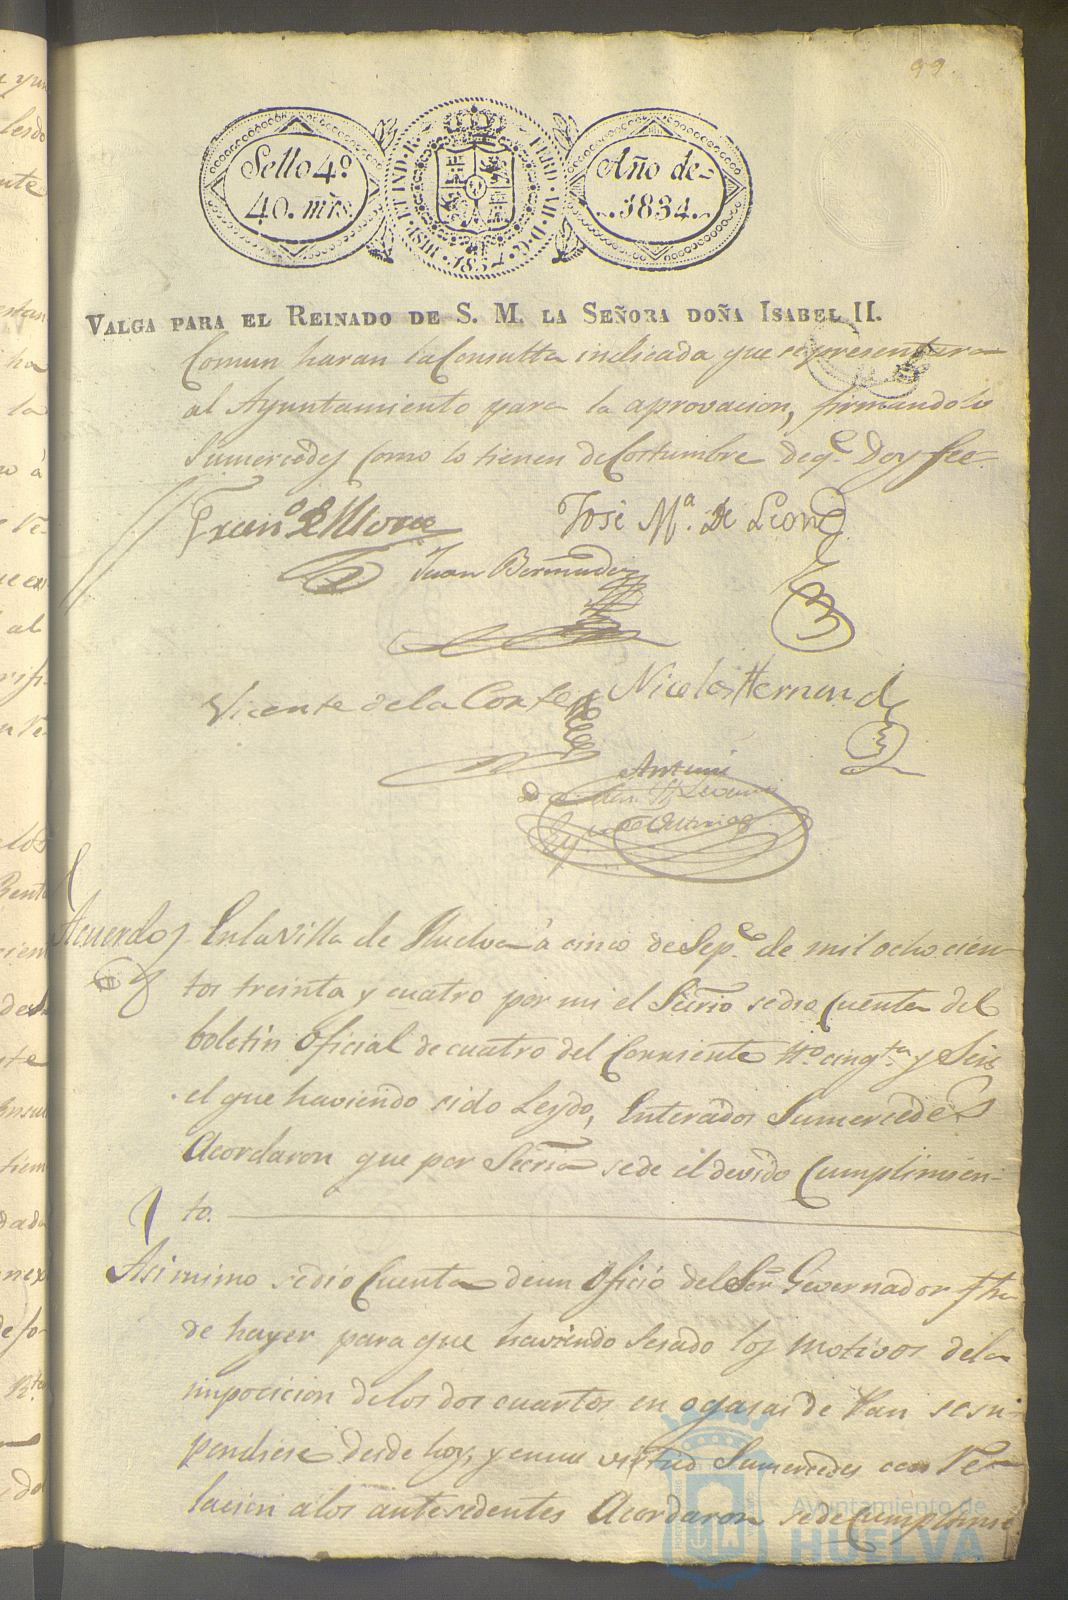 99.
Sello 4º
40. mrs.
HISP. ET IND. R. FERD. VII. D. G.
1834
Año de
1834.
VALGA PARA EL REINADO DE S. M. LA SEÑORA DOÑA ISABEL II.
Comun haran la Consulta indicada que se presentara
al Ayuntamiento para la aprovacion, firmandolo
Sumercedes como lo tienen de Costumbre de q.e Doy fee.
Fran.co de Mora José M.ª De Leon
Juan Bermudez
Vicente de la Corte Nicolas Hernand
Antemi
Acuerdo En la Villa de Huelva à cinco de Sep.e de mil ochocien-
tos treinta y cuatro por mi el Secrio se dio Cuenta del
boletin Oficial de cuatro del Corriente Nº cinq.ta y Seis
el que haviendo sido Leydo, Enterados Sumercedes
Acordaron que por Secria se de el devido Cumplimien-
to.
Asimimo se dio Cuenta de un Oficio del Sor Governador fha
de hayer para que haviendo Sesado los motivos de la
imposicion de los dos cuartos en ogasas de Pan se sus-
pendiese desde hoy, y en su virtud Sumercedes con Re-
lacion a los antesedentes Acordaron se de Cumplimie
Ayuntamiento de
HUELVA